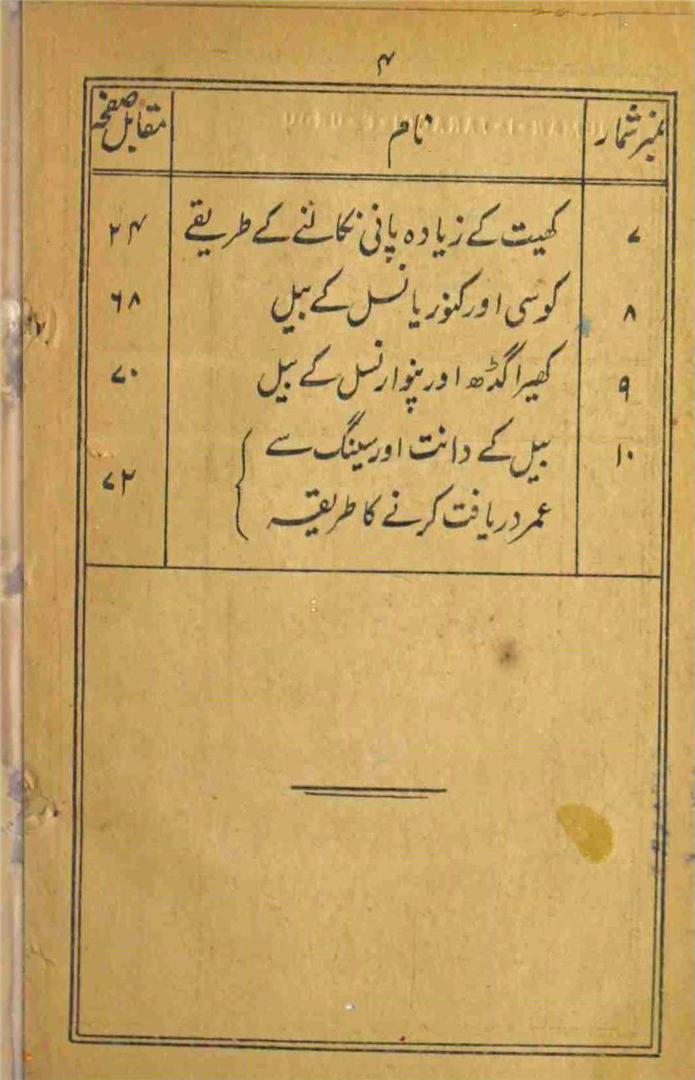 ۴
نمبر شمار نام مقابل صفحہ
۷ کھیت کے زیادہ پانی نکالنے کے طریقے ۲۴
۸ کوسی اور کنوریا نسل کے بیل ۶۸
۹ کھیراگڈھ اور پنوار نسل کے بیل ۷۰
۱۰ بیل کے دانت اور سینگ سے
عمر دریافت کرنے کا طریقہ ۷۲